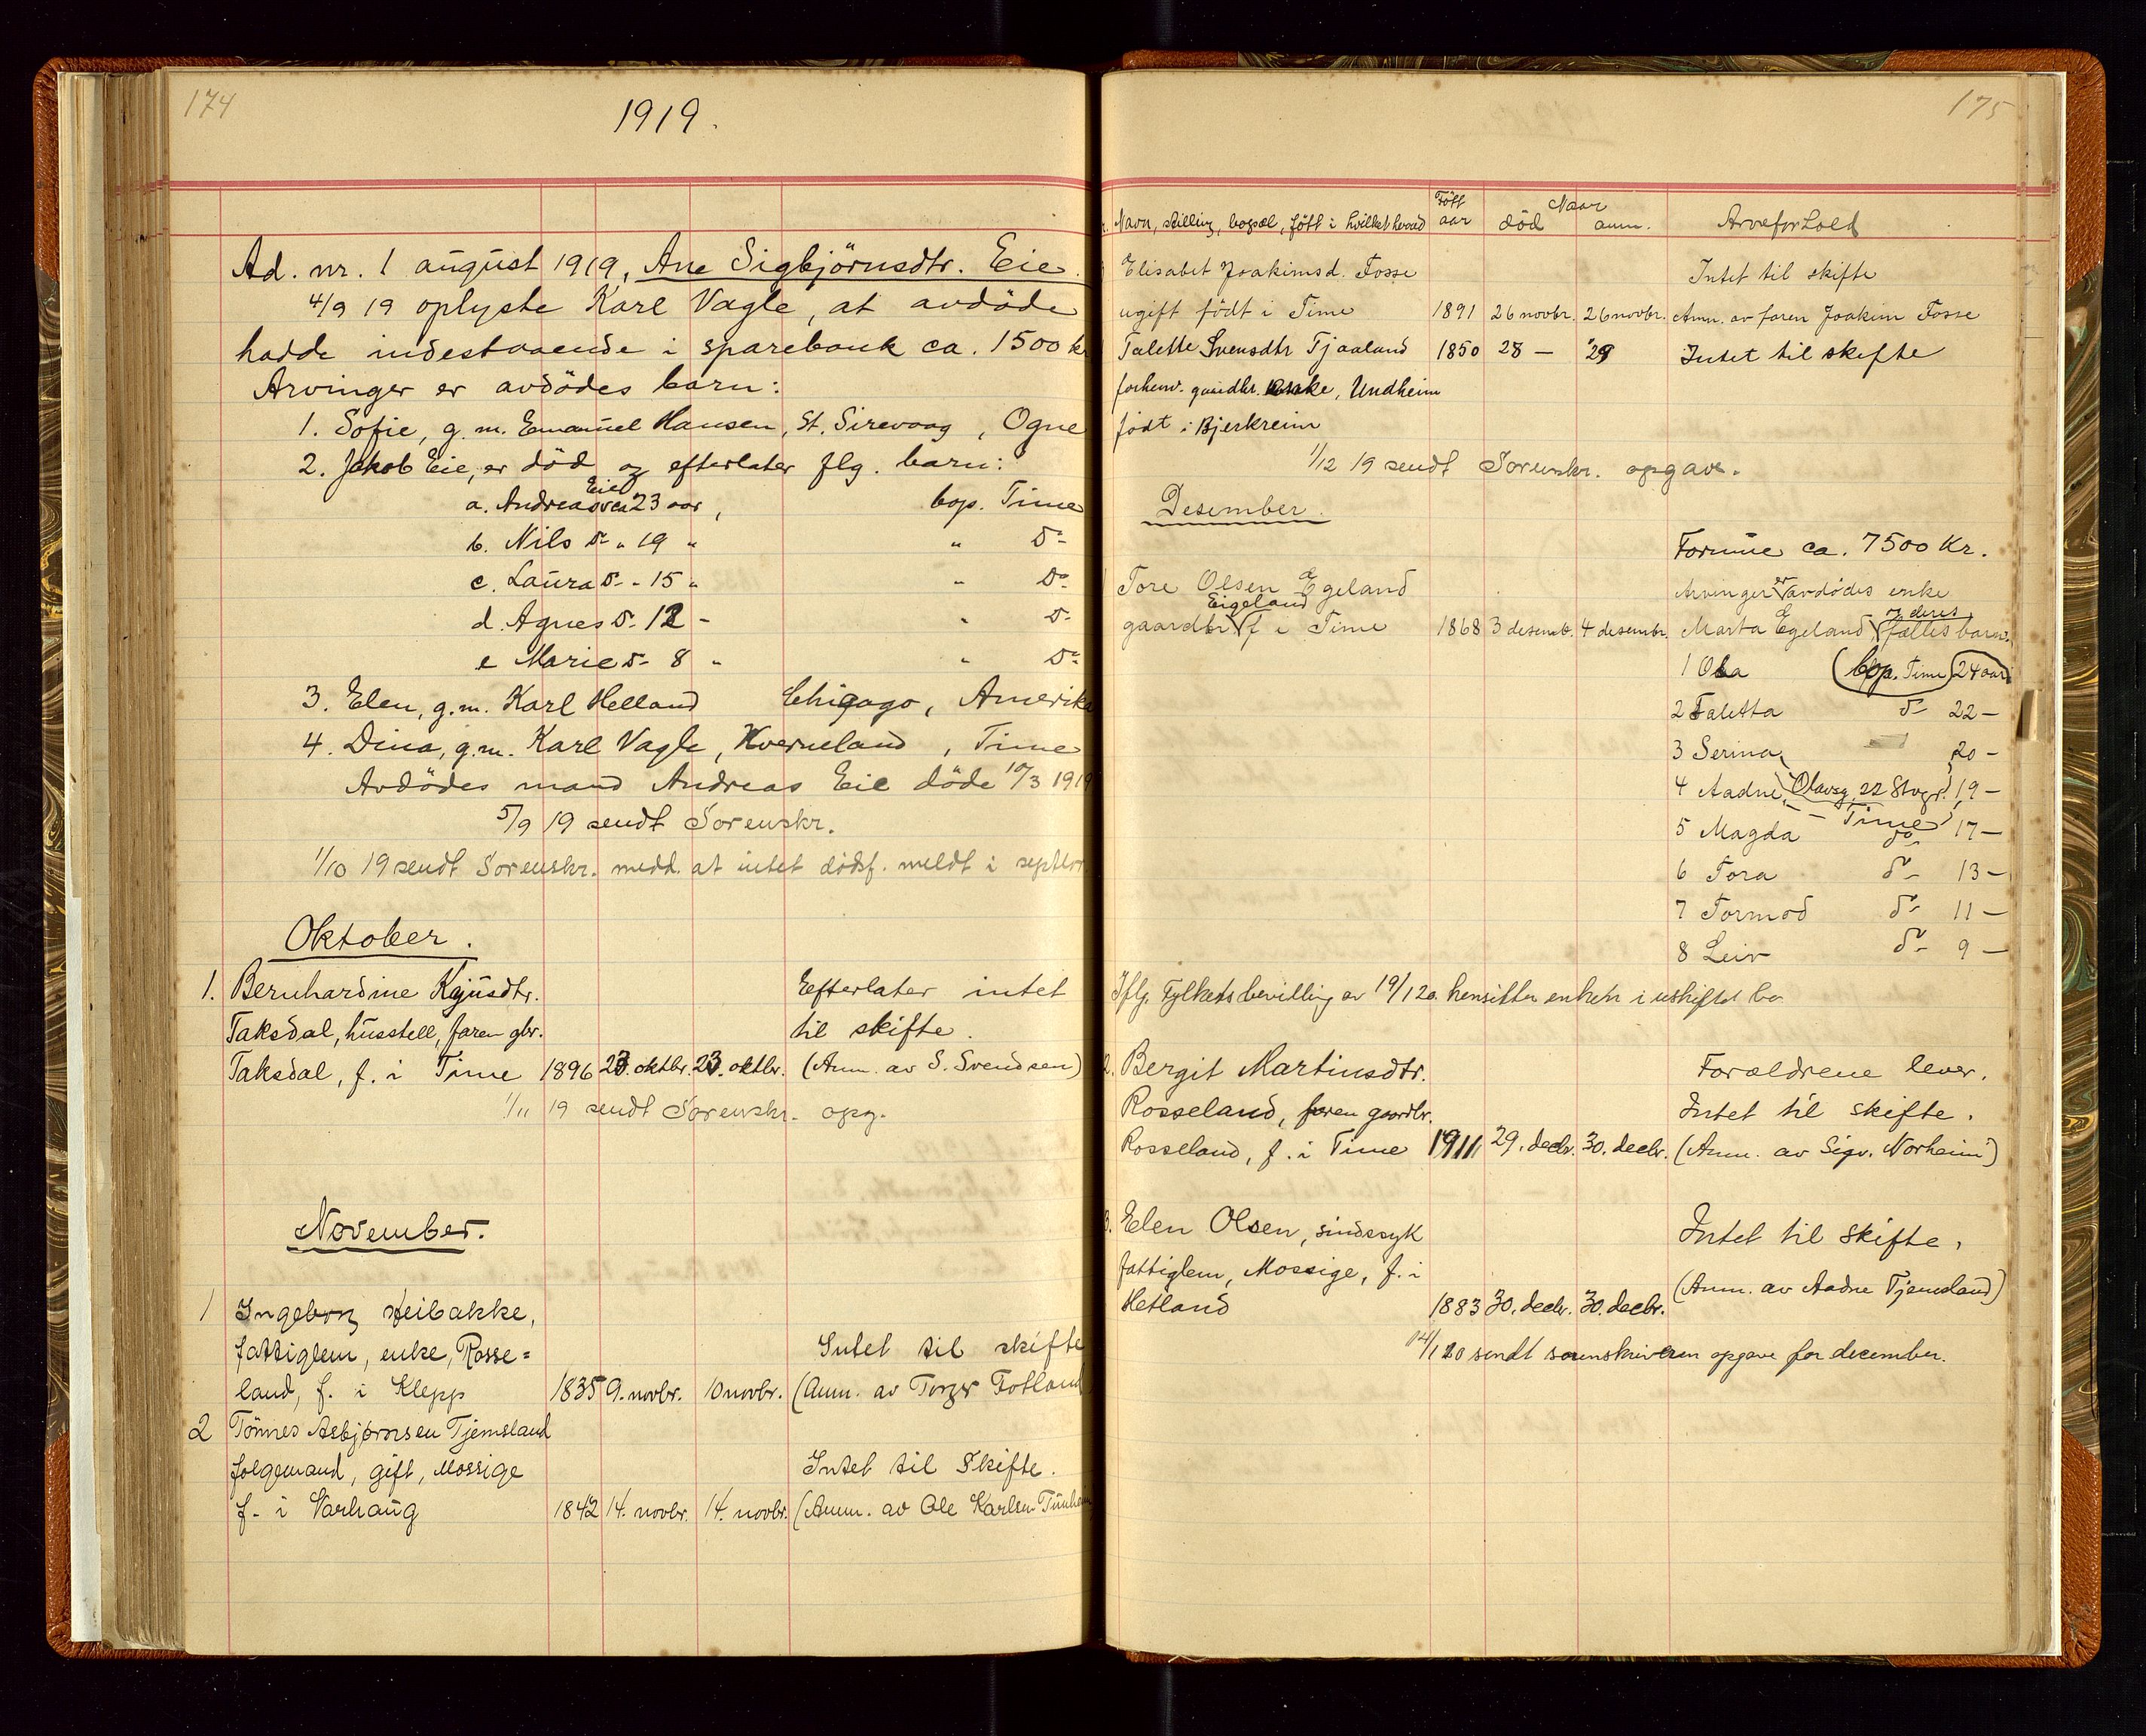 174
1919.
Ad. nr. 1 august 1919, Ane Sigbjörnsdtr. Eie.
4/9 19 oplyste Karl Vagle, at avdöde
hadde indestaaende i sparebank ca. 1500 k
Arvinger er avdödes barn:
1. Sofie, g. m. Emanuel Hansen, St. Sirevaag, Ogne
2. Jakob Eie, er död og efterlater flg. barn:
Eie
a. Andreas 23 aar, bop. Time
b. Nils do " 19 " " do
c. Laura do - 15 " " do
d. Agnes do - 12 - " do
e Marie do - 8 " " do
3. Elen, g.m. Karl Helland Chicago, Amerika
4. Dina, g.m. Karl Vagle, Kverneland, Time
Avdödes mand Andreas Eie döde 10/3 1919
5/9 19 sendt Sorenskr.
1/10 19 sendt Sorenskr. medd. at intet dödsf. meldt i septbr
Oktober.
1. Bernhardine Kajusdtr. Efterlater intet
Taksdal, husstell, faren gbr. til skifte.
Taksdal, f. i Time 1896 23. oktbr. 23. oktbr. (Anm. av S. Svendsen)
1/11 19 sendt Sorenskr. opg.
November.
1 Ingeborg Heibakke,
fattiglem, enke, Rosse= Intet til skifte
land, f. i Klepp 1835 9. novbr. 10 novbr. (Anm. av Torger Fotland
2 Tönnes Asbjørnsen Tjemsland
folgemand, gift, Mossige Intet til Skifte.
f. i Varhaug 1842 14. novbr. 14. novbr. (Anm. av Ole Karlsen Tunheim
175
Navn, stilling, bopæl, fött i hvilket herred Fött aar Naar död anm. Arveforhold
Elisabet Joakimsd. Fosse Intet til skifte
ugift födt i Time 1891 26 novbr. 26 novbr. Anm. av faren Joakim Fosse
Talette Svensdtr Tjaaland 1850 28 — 29 Intet til skifte
forhenv. gaardbr. enke, Undheim
födt i Bjerkreim
1/12 19 sendt Sorenskr. opgave.
Desember.
Formue ca. 7500 Kr.
Tore Olsen Egeland Arvinger er avdödes enke
Eigeland og deres
gaardbr f i Time 1868 3 desemb. 4 desembr. Marta Egeland fælles barn.
1 Ola (bop. Time) 24 aar
2 Taletta do 22 —
3 Serina 20 —
4 Aadne, Olavsg. 22 Stvgr. 19 —
— Time
5 Magda do 17 —
6 Tora do 13 —
7 Tormod do 11 —
8 Leiv do 9 —
Iflg. Fylkets bevilling av 19/1 20. hensitter enken i uskiftet bo
2. Bergit Martinsdtr. Forældrene lever.
Rosseland, faren gaardbr. Intet til skifte.
Rosseland, f. i Time 1911 29. decbr. 30. decbr. (Anm. av Sigv. Norheim)
3. Elen Olsen, sindssyk Intet til skifte,
fattiglem, Mossige, f. i (Anm. av Aadne Tjemsland)
Hetland 1883 30. decbr. 30. decbr.
14/1 20 sendt sorenskriveren opgave for december.